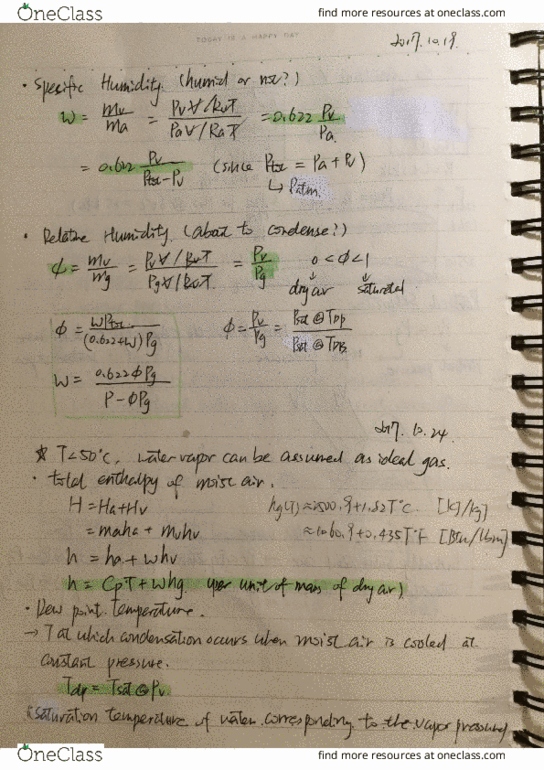 OneClass
find more resources at oneclass.com
TODAY IS A HAPPY DAY
2017.10.19.
· Specific Humidity. (humid or not?)
W = mv/ma = Pv∀/RvT / Pa∀/RaT = 0.622 Pv/Pa
= 0.622 Pv/Ptot-Pv (since Ptot = Pa + Pv)
↳ Patm.
· Relative Humidity. (about to condense?)
ϕ = mv/mg = Pv∀/RvT / Pg∀/RvT = Pv/Pg 0<ϕ<1
dry air saturated
ϕ = WPtot/(0.622+W)Pg ϕ = Pv/Pg = Psat @ Tdp / Psat @ TDB
W = 0.622ϕPg / P-ϕPg
2017. 10. 24.
* T<50°C, water vapor can be assumed as ideal gas.
· total enthalpy of moist air.
H = Ha+Hv hg(T) ≈ 2500.9+1.82T°C [kJ/kg]
= maha + mvhv ≈ 1060.9+0.435T°F [Btu/lbm]
h = ha + whv
h = CpT + whg. (per unit of mass of dry air)
· Dew point temperature.
→ T at which condensation occurs when moist air is cooled at
constant pressure.
Tdp = Tsat @ Pv
(saturation temperature of water corresponding to the vapor pressure)
OneClass
find more resources at oneclass.com